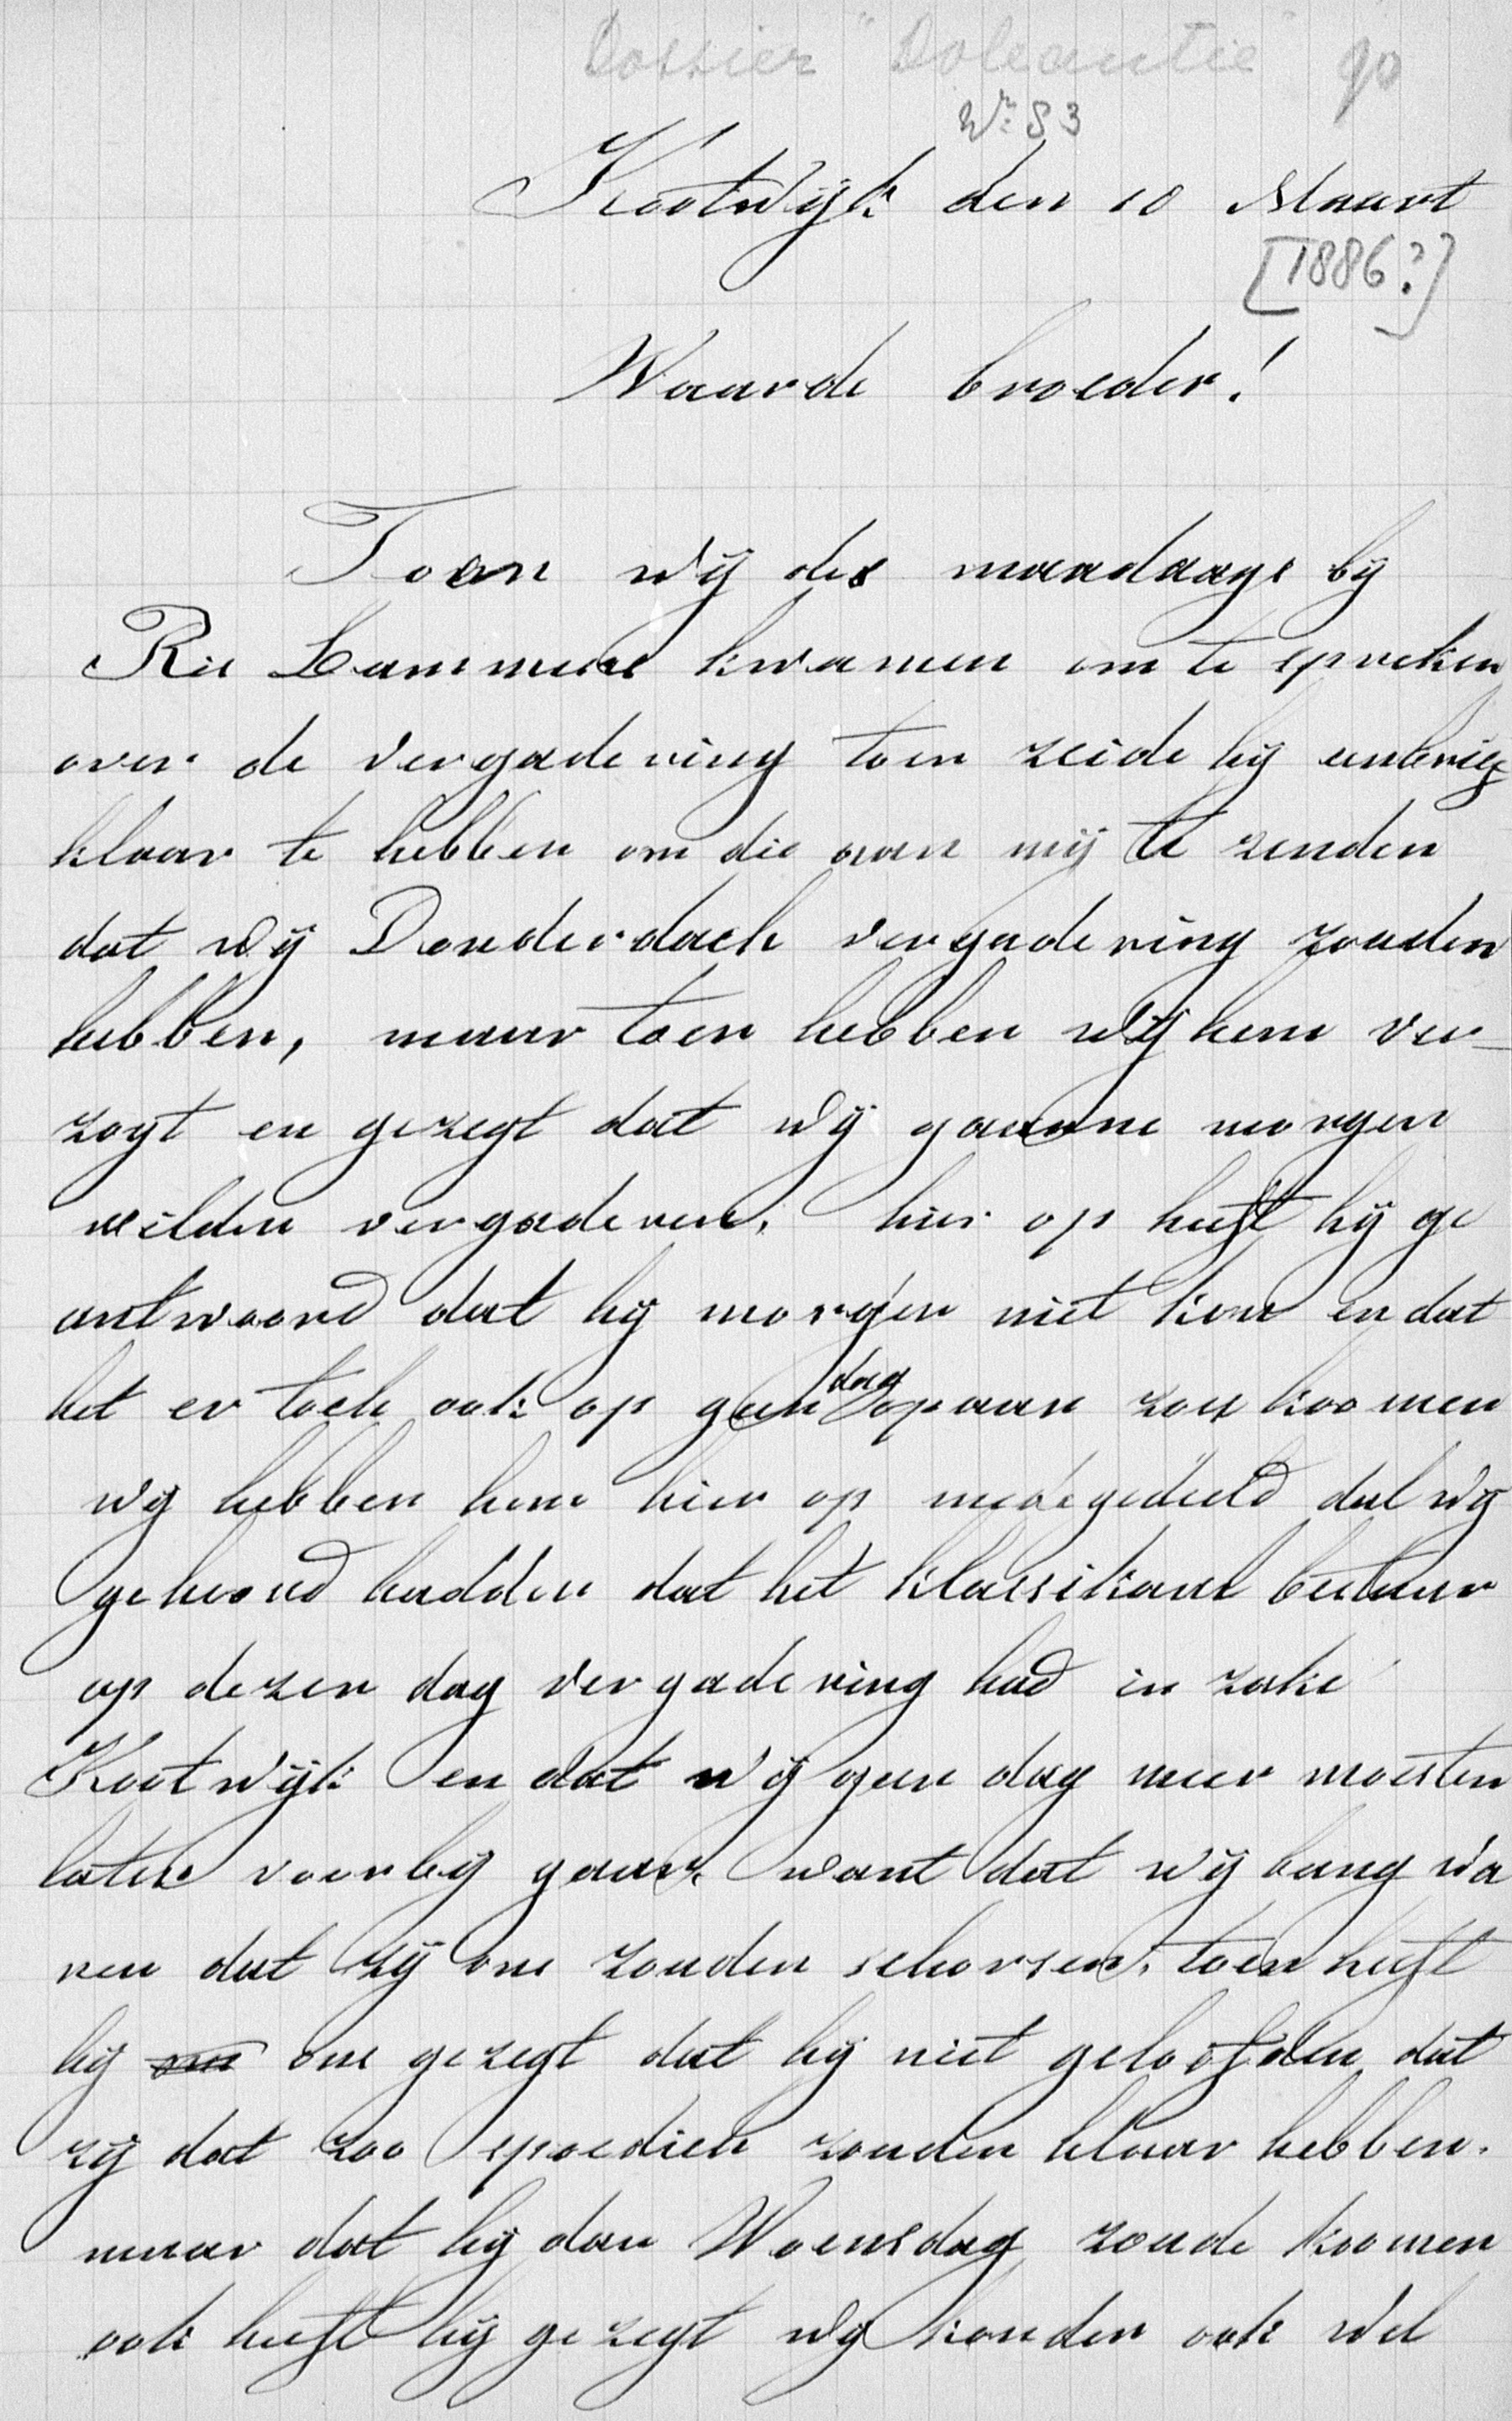 Dossier "Doleantie" 90
No 83
Kootwijk den 10 Maart
[1886?]
Waarde broeder!
Toen wij des maandaags bij
Lammers kwamen om te spreken
over de vergadering toen zeide hij een brief
klaar te hebben om die aan mij te zenden
dat wij Donderdach vergadering zouden
hebben, maar toen hebben wij hem ver-
zogt en gezegt dat wij gaarne morgen
wilden vergaderen. hier op heeft hij ge
antwoord dat hij morgen niet kon en dat
het er toch ook op geen dag op aan zou koomen
wij hebben hem hier op medegedeeld dat wij
gehoord hadden dat het klassikaal bestuur
op dezen dag vergadering had in zake
Kootwijk en dat wij geen dag meer moesten
laten voorbij gaan want dat wij bang wa
ren dat zij ons zouden schorsen. toen heeft
hij ons gezegt dat hij niet geloofden dat
zij dat zoo spoedich zouden klaar hebben.
maar dat hij dan Woensdag zoude koomen
ook heeft hij gezegt wij konden ook wel